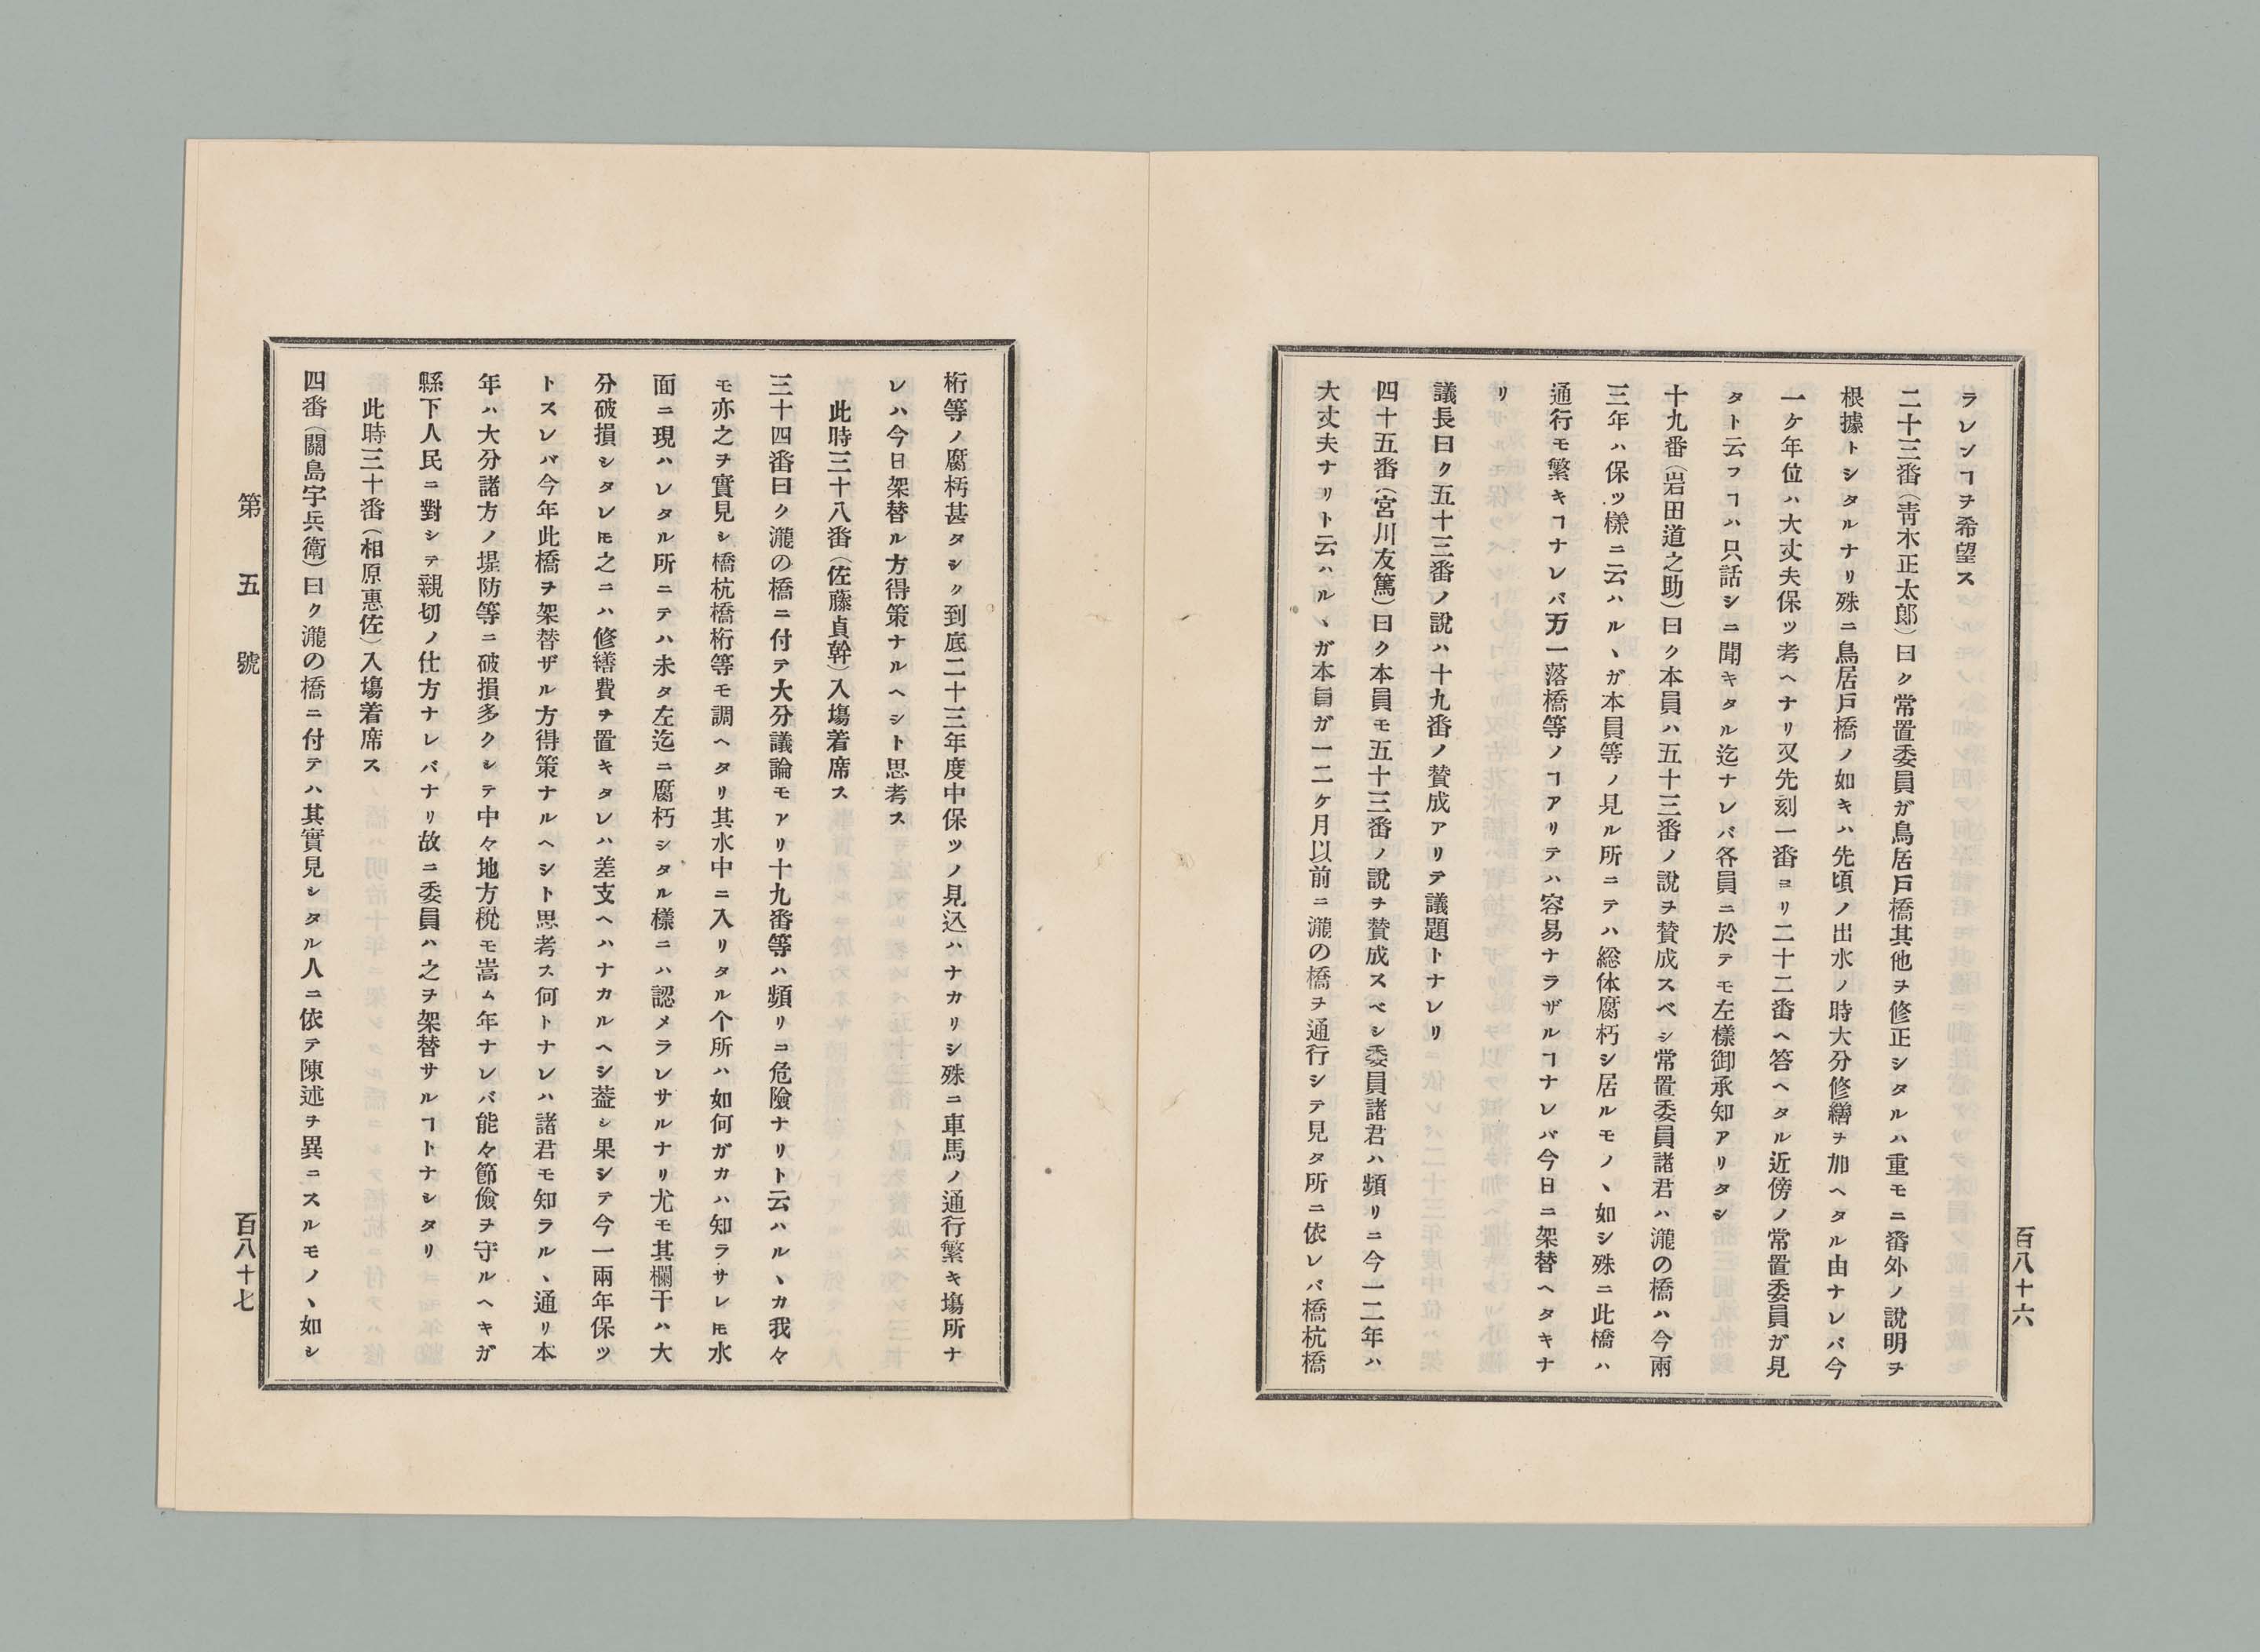 百八十六
ラレンヿヲ希望ス
二十三番(靑木正太郞)曰ク常置委員ガ鳥居戸橋其他ヲ修正シタルハ重モニ番外ノ說明ヲ
根據トシタルナリ殊ニ鳥居戸橋ノ如キハ先頃ノ出水ノ時大分修繕ヲ加ヘタル由ナレバ今
一ケ年位ハ大丈夫保ツ考ヘナリ又先刻一番ヨリ二十二番ヘ答ヘタル近傍ノ常置委員ガ見
タト云フヿハ只話シニ聞キタル迄ナレバ各員ニ於テモ左樣御承知アリタシ
十九番(岩田道之助)曰ク本員ハ五十三番ノ說ヲ賛成スベシ常置委員諸君ハ瀧の橋ハ今兩
三年ハ保ツ樣ニ云ハルヽガ本員等ノ見ル所ニテハ総体腐朽シ居ルモノヽ如シ殊ニ此橋ハ
通行モ繁キヿナレバ万一落橋等ノヿアリテハ容易ナラザルヿナレバ今日ニ架替ヘタキナ
リ
議長曰ク五十三番ノ說ハ十九番ノ賛成アリテ議題トナレリ
四十五番(宮川友篤)曰ク本員モ五十三番ノ說ヲ賛成スベシ委員諸君ハ頻リニ今一二年ハ
大丈夫ナリト云ハルヽガ本員ガ一二ケ月以前ニ瀧の橋ヲ通行シテ見タ所ニ依レバ橋杭橋
桁等ノ腐朽甚タシク到底二十三年度中保ツノ見込ハナカリシ殊ニ車馬ノ通行繁キ塲所ナ
レハ今日架替ル方得策ナルヘシト思考ス
此時三十八番(佐藤貞幹)入塲着席ス
三十四番曰ク瀧の橋ニ付テ大分議論モアリ十九番等ハ頻リニ危險ナリト云ハルヽカ我々
モ亦之ヲ實見シ橋杭橋桁等モ調ヘタリ其水中ニ入リタル个所ハ如何ガカハ知ラサレ𪜈水
面ニ現ハレタル所ニテハ未タ左迄ニ腐朽シタル樣ニハ認メラレサルナリ尤モ其欄干ハ大
分破損シタレ𪜈之ニハ修繕費ヲ置キタレハ差支ヘハナカルヘシ蓋シ果シテ今一兩年保ツ
トスレバ今年此橋ヲ架替ザル方得策ナルヘシト思考ス何トナレハ諸君モ知ラルヽ通リ本
年ハ大分諸方ノ堤防等ニ破損多クシテ中々地方稅モ嵩ム年ナレバ能々節儉ヲ守ルヘキガ
縣下人民ニ對シテ親切ノ仕方ナレバナリ故ニ委員ハ之ヲ架替サルヿトナシタリ
此時三十番(相原惠佐)入塲着席ス
四番(關島宇兵衛)曰ク瀧の橋ニ付テハ其實見シタル人ニ依テ陳述ヲ異ニスルモノヽ如シ
第五號
百八十七